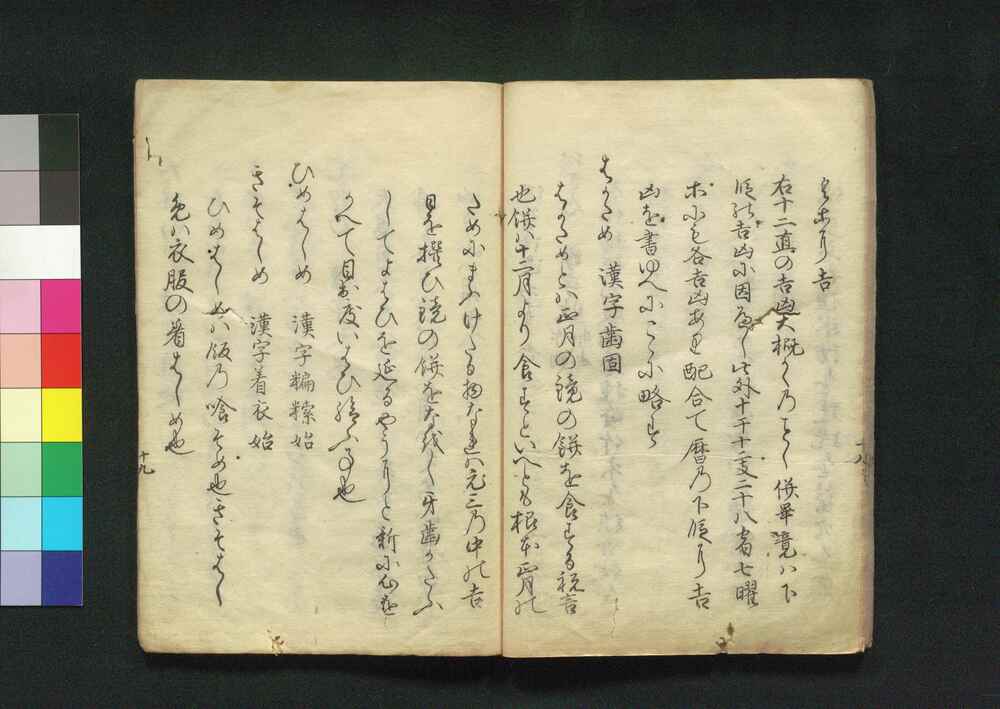 右十二直の吉凶大概かくのことし併畢竟ハ下
段の吉凶に因へし此外十干十二支二十八宿七曜
ホにも各吉凶あり配合て暦の下段に吉
凶を書ゆへにこゝに略す
はかため 漢字歯固
はかためとハ正月の鏡の餅を食する祝言
也餅ハ十二月より食すといへとも根本正月の
ためにまふけたる物なれハ元三の中の吉
日を撰ひ鏡の餅を
してよはひを延るやうにと新に心を
ひめはしめ 漢字糄䊝始
きそはしめ 漢字着衣始
ひめはしめハ飯の喰そめ也きそはし
めハ衣服の着はしめ也
十八
十九